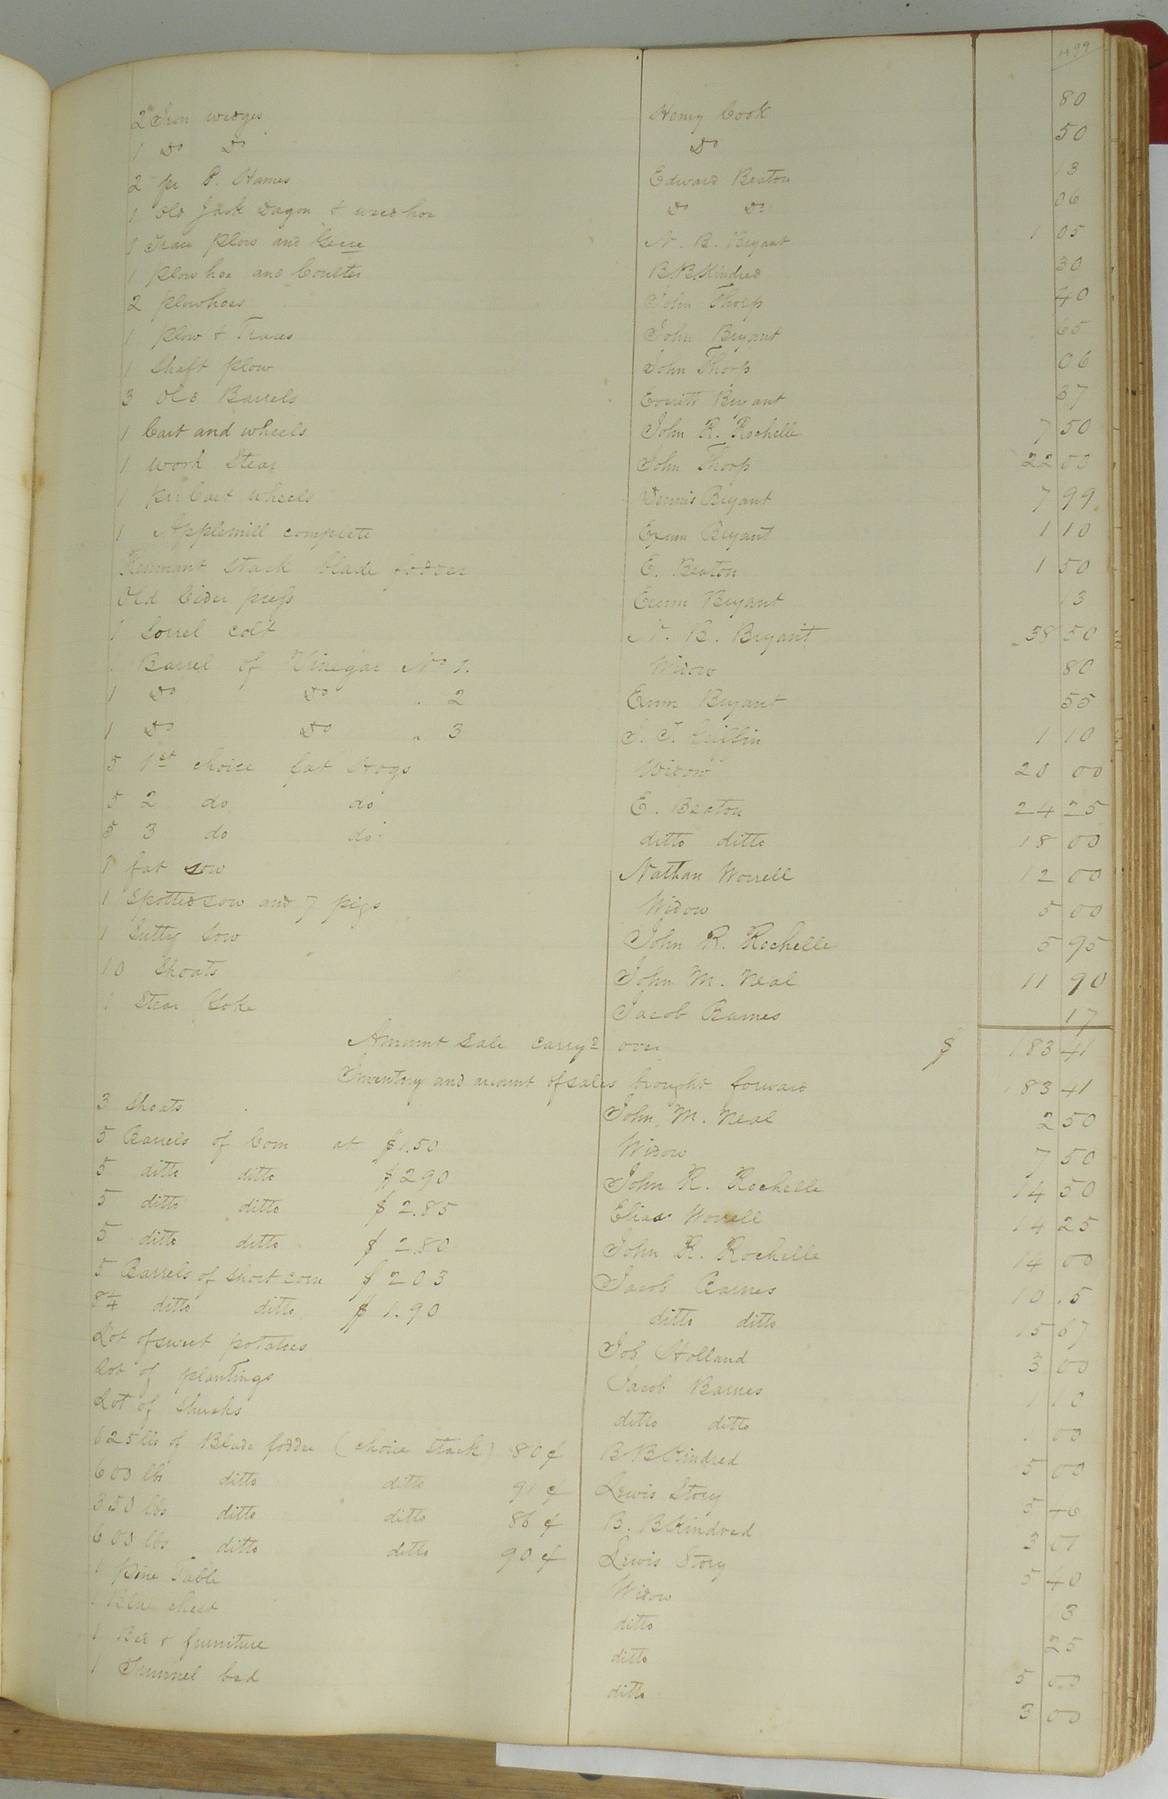 499
2 Iron wedges Henry Cook 80
1 Do Do Do 50
2 pr P. Hames Edward Beaton 13
1 Old Jack Dagon & weedhoe Do Do 06
1 Trace plow and Geer N. B. Bryant 1 05
1 plowhoe and Coulter B B Kindred 30
2 plowhoes John Thorp 40
1 plow & Traces John Bryant 65
1 Shaft plow John Thorp 06
3 Old Barrels Everett Bryant 37
1 Cart and wheels John R. Rochelle 7 50
1 Work Stear John Thorp 22 00
1 pr Cart wheels Dennis Bryant 7 99
1 Applemill complete Exum Bryant 1 10
Remnant Stack blade fodder E. Beaton 1 50
Old Cider press Exum Bryant 13
1 Sorrel colt N. B. Bryant 38 50
1 Barrel of Vinegar No 1. Widow 80
1 Do Do . 2 Exum Bryant 55
1 Do Do " 3 1 10
5 1st choice fat Hogs Widow 20 00
5 2 do do E. Beaton 24 25
5 3 do do ditto ditto 18 00
1 fat sow Nathan Worrell 12 00
1 Spotted sow and 7 pigs Widow 5 00
1 Sutty Sow John R. Rochelle 5 95
10 Shoats John M. Neal 11 90
1 Stear Yoke Jacob Barnes 17
Amount Sale carryd over $ 183 41
Inventory and amount of sales brought forward 183 41
3 Shoats John M. Neal 2 50
5 Barrels of Corn at $1.50 Widow 7 50
5 ditto ditto $2 90 John R. Rochelle 14 50
5 ditto ditto $2.85 Elias Worrell 14 25
5 ditto ditto $2 80 John R. Rochelle 14 00
5 Barrels of short corn $2 03 Jacob Barnes 10 15
8¼ ditto ditto $1.90 ditto ditto 15 67
Lot of sweet potatoes Job Holland 3 00
Lot of plantings Jacob Barnes 1 10
Lot of Shucks ditto ditto 00
625 lbs of Blade fodder (choice stack) 80 ¢ B B Kindred 5 00
600 lbs ditto ditto 91 ¢ Lewis Story 5 46
350 lbs ditto ditto 86 ¢ B. B Kindred 3 01
600 lbs ditto ditto 90 ¢ Lewis Story 5 40
1 pine Table Widow 13
1 Blue chest ditto 25
1 Bed & furniture ditto 5 00
1 Trunnel bed ditto 3 00